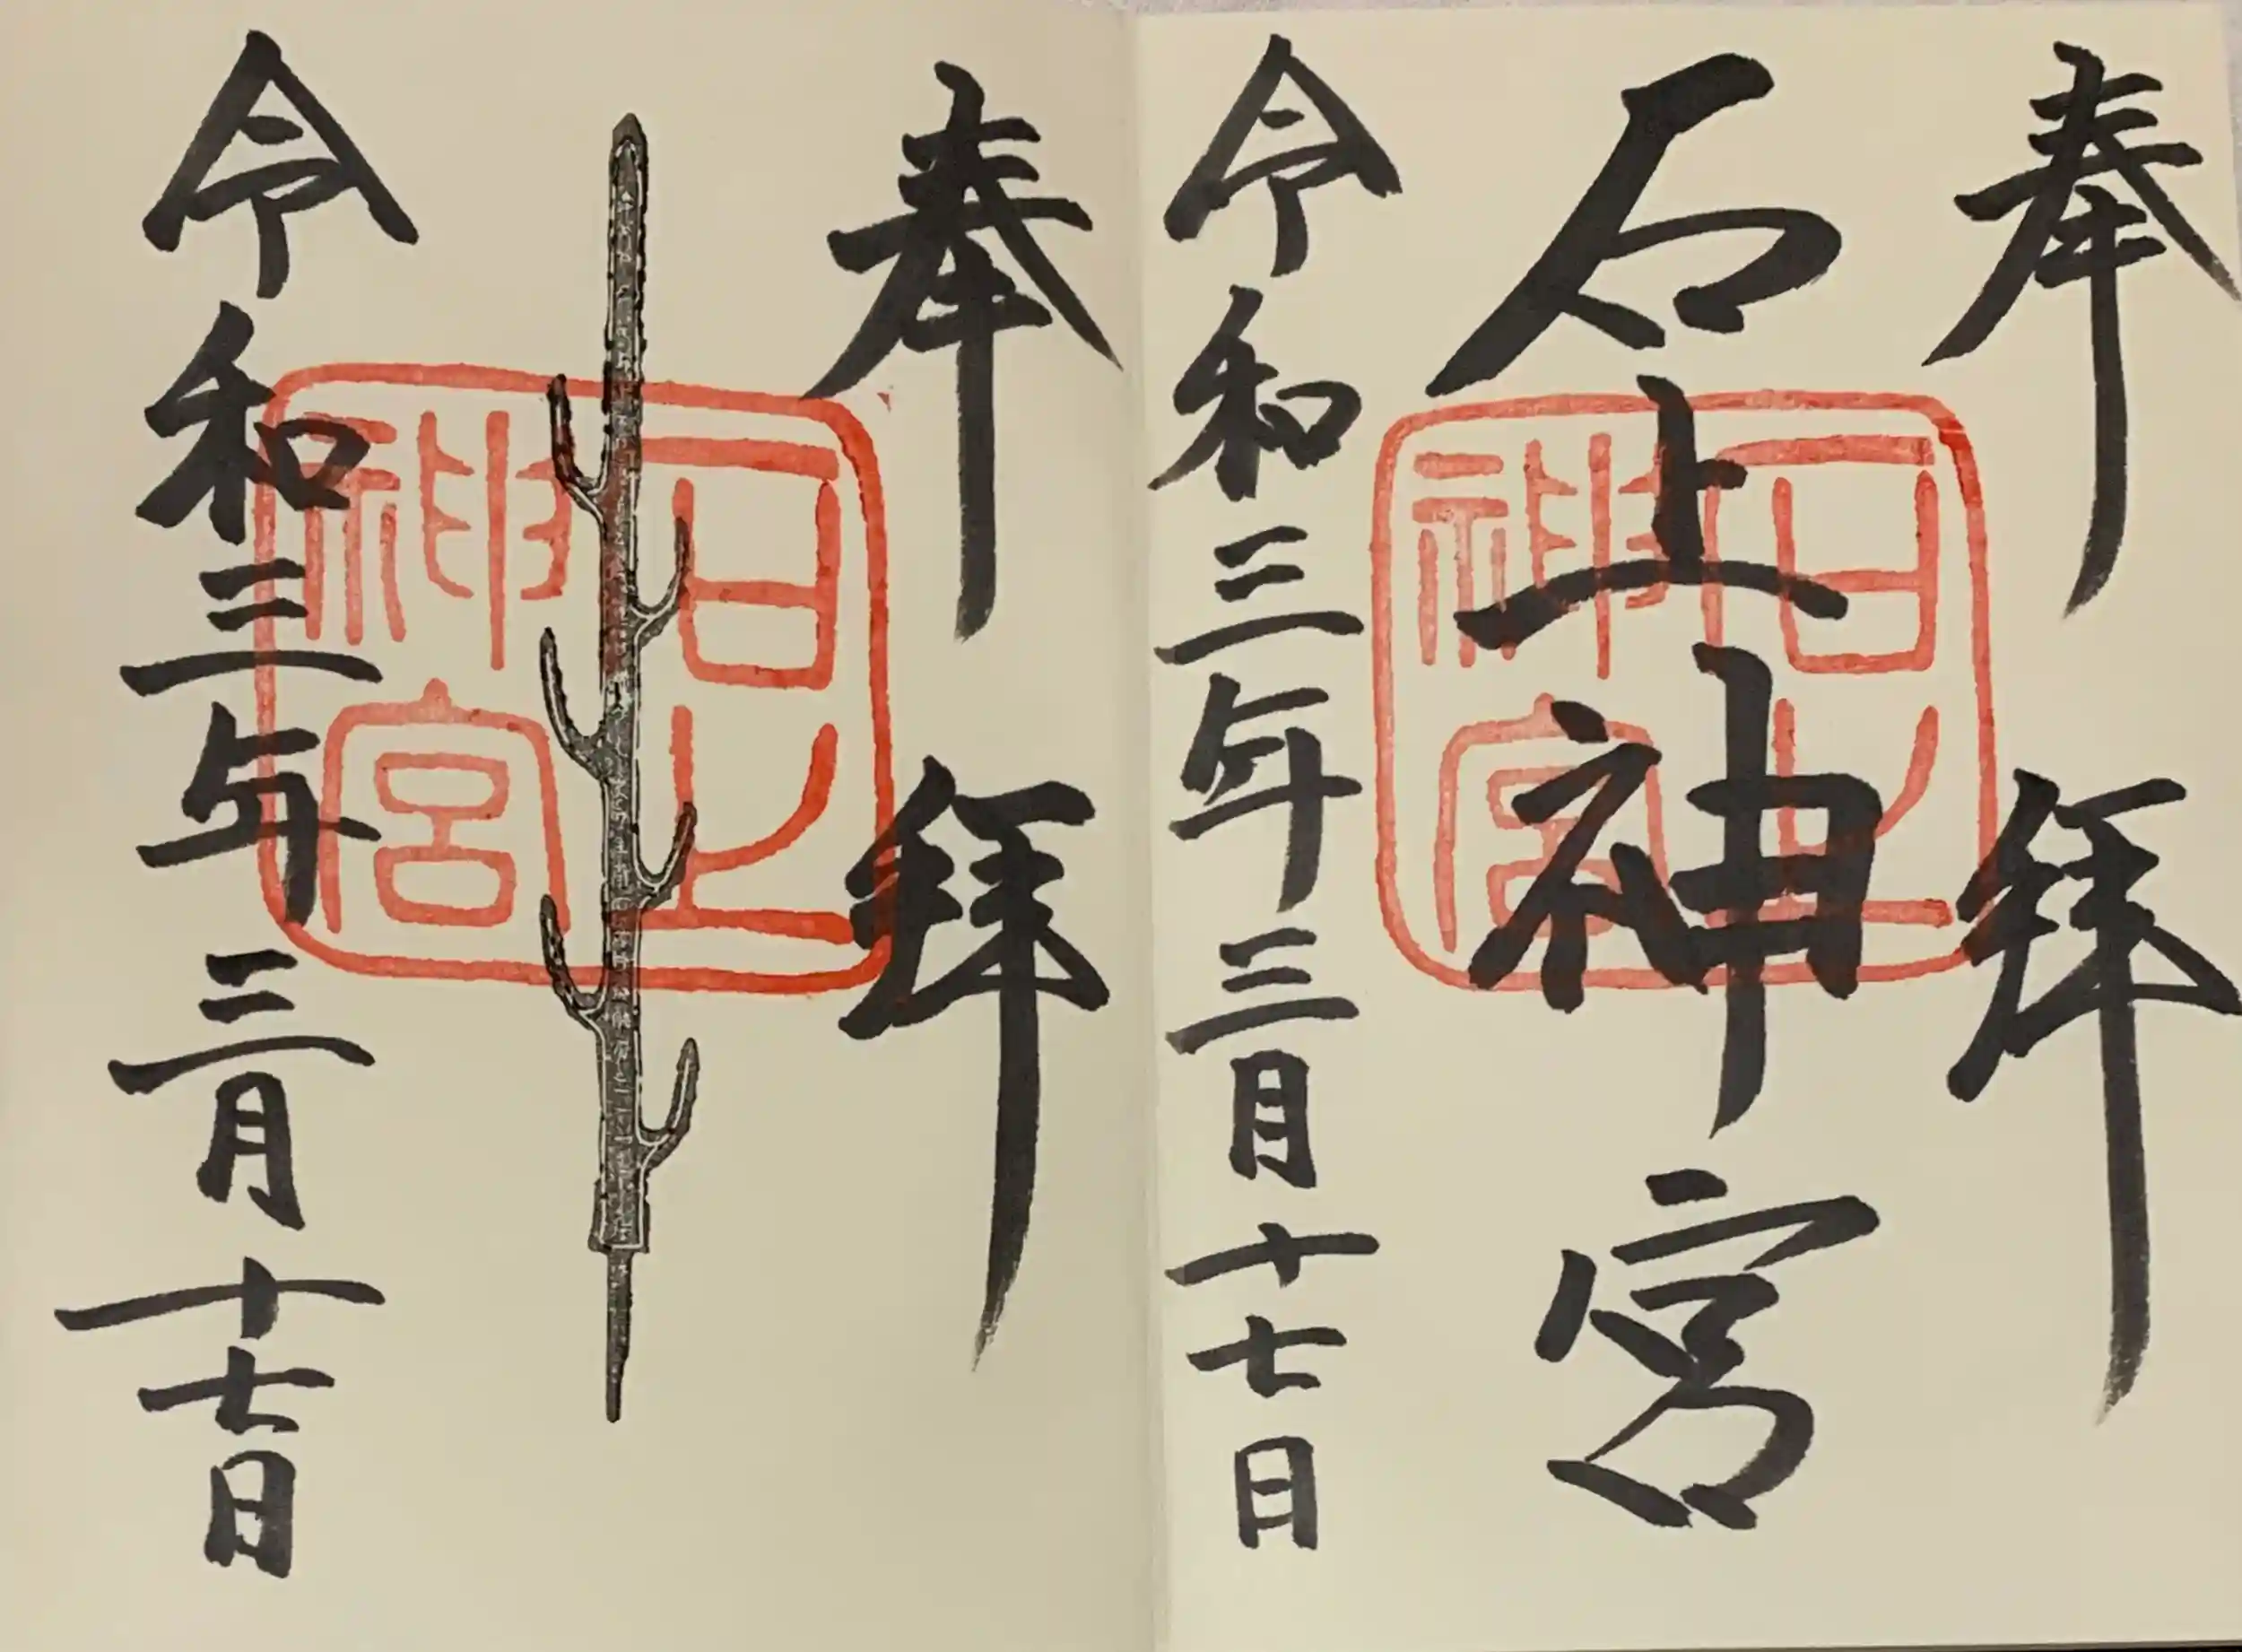 奉拝
石上神宮
石上神宮
令和三年三月十七日
奉拝
石上神宮
令和三年三月十七日